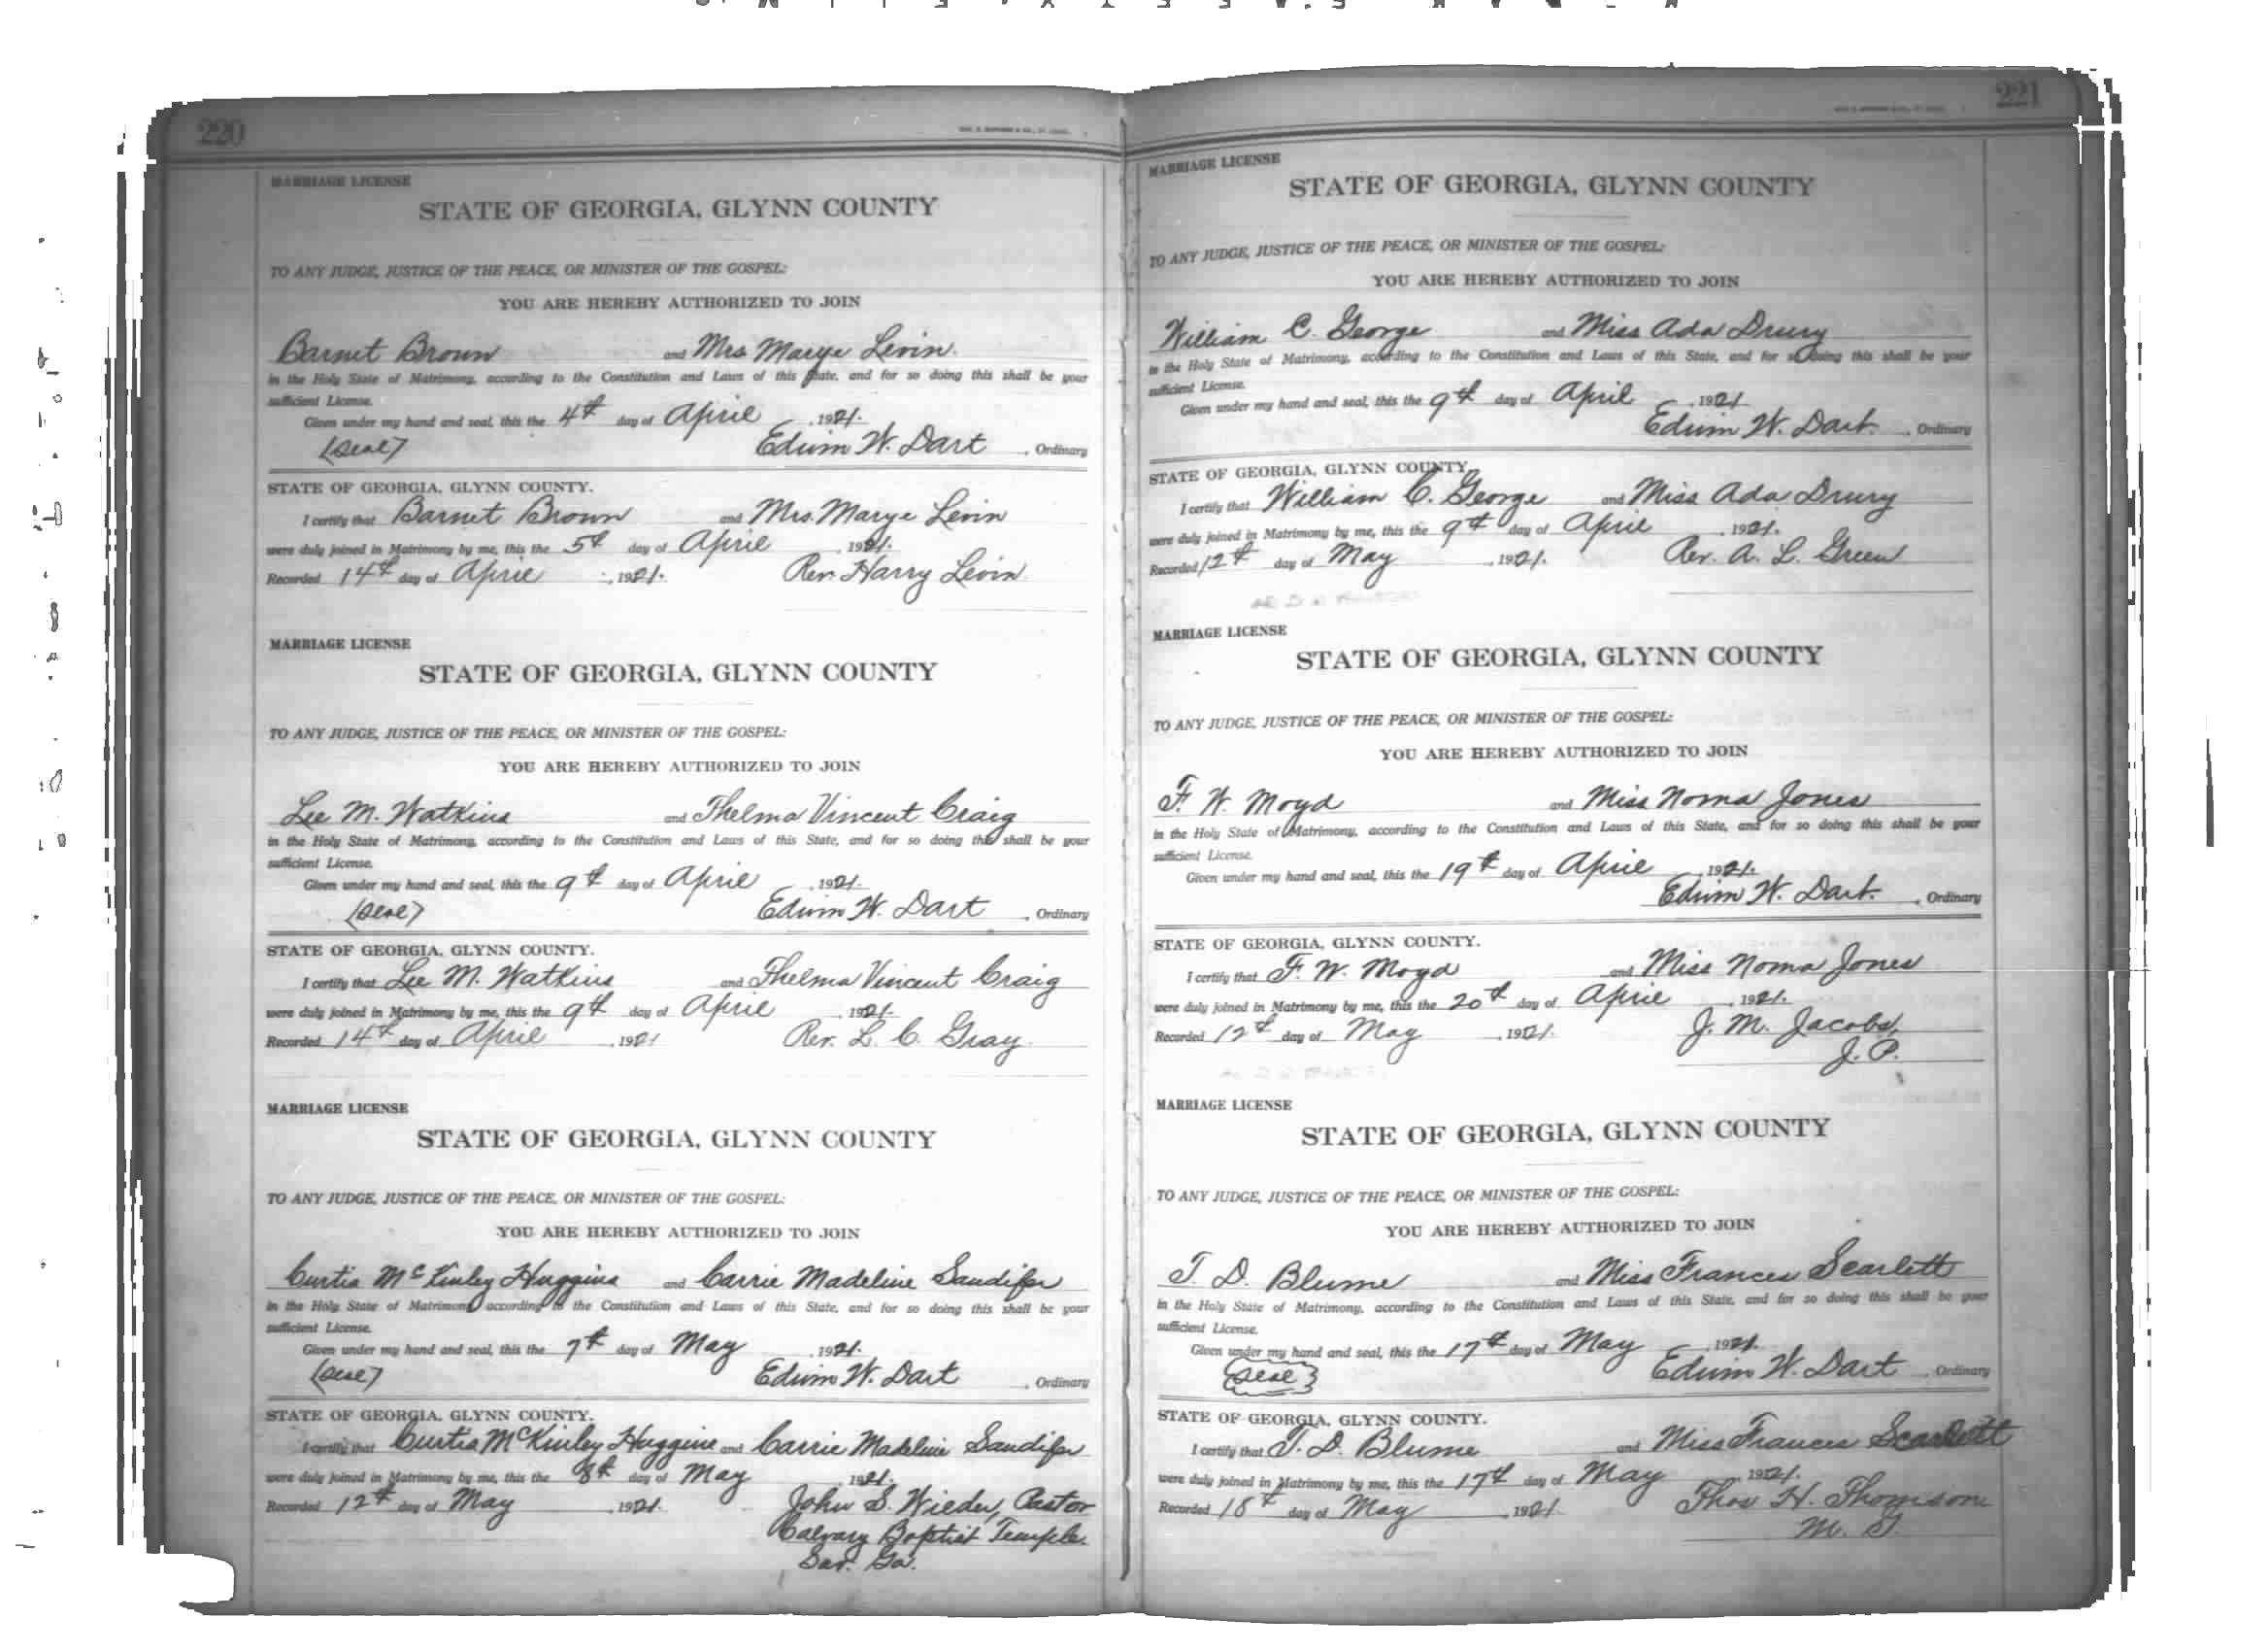 220
MARRIAGE LICENSE
STATE OF GEORGIA, GLYNN COUNTY
TO ANY JUDGE, JUSTICE OF THE PEACE, OR MINISTER OF THE GOSPEL:
YOU ARE HEREBY AUTHORIZED TO JOIN
Barnet Brown and Mrs Marye Levin.
in the Holy State of Matrimony, according to the Constitution and Laws of this State, and for so doing this shall be your
sufficient License.
Given under my hand and seal, this the 4th day of April, 1921.
(Seal) Edwin W. Dart, Ordinary
STATE OF GEORGIA, GLYNN COUNTY.
I certify that Barnet Brown and Mrs. Marye Levin
were duly joined in Matrimony by me, this the 5th day of April, 1921.
Recorded 14th day of April, 1921. Rev. Harry Levin
MARRIAGE LICENSE
STATE OF GEORGIA, GLYNN COUNTY
TO ANY JUDGE, JUSTICE OF THE PEACE, OR MINISTER OF THE GOSPEL:
YOU ARE HEREBY AUTHORIZED TO JOIN
Lee M. Watkins and Thelma Vincent Craig
in the Holy State of Matrimony, according to the Constitution and Laws of this State, and for so doing this shall be your
sufficient License.
Given under my hand and seal, this the 9th day of April, 1921.
(Seal) Edwin W. Dart, Ordinary
STATE OF GEORGIA, GLYNN COUNTY.
I certify that Lee M. Watkins and Thelma Vincent Craig
were duly joined in Matrimony by me, this the 9th day of April, 1921.
Recorded 14th day of April, 1921 Rev. L. C. Gray
MARRIAGE LICENSE
STATE OF GEORGIA, GLYNN COUNTY
TO ANY JUDGE, JUSTICE OF THE PEACE, OR MINISTER OF THE GOSPEL:
YOU ARE HEREBY AUTHORIZED TO JOIN
Curtis McKinley Huggins and Carrie Madeline Sandifer
in the Holy State of Matrimony, according to the Constitution and Laws of this State, and for so doing this shall be your
sufficient License.
Given under my hand and seal, this the 7th day of May, 1921.
(Seal) Edwin W. Dart, Ordinary
STATE OF GEORGIA, GLYNN COUNTY.
I certify that Curtis McKinley Huggins and Carrie Madeline Sandifer
were duly joined in Matrimony by me, this the 8th day of May, 1921.
Recorded 12th day of May, 1921. John S. Wieder, Pastor
Calvary Baptist Temple.
Sav. Ga.
221
MARRIAGE LICENSE
STATE OF GEORGIA, GLYNN COUNTY
TO ANY JUDGE, JUSTICE OF THE PEACE, OR MINISTER OF THE GOSPEL:
YOU ARE HEREBY AUTHORIZED TO JOIN
William C. George and Miss Ada Drury
in the Holy State of Matrimony, according to the Constitution and Laws of this State, and for so doing this shall be your
sufficient License.
Given under my hand and seal, this the 9th day of April, 1921
Edwin W. Dart., Ordinary
STATE OF GEORGIA, GLYNN COUNTY.
I certify that William C. George and Miss Ada Drury
were duly joined in Matrimony by me, this the 9th day of April, 1921.
Recorded 12th day of May, 1921. Rev. A. L. Green
MARRIAGE LICENSE
STATE OF GEORGIA, GLYNN COUNTY
TO ANY JUDGE, JUSTICE OF THE PEACE, OR MINISTER OF THE GOSPEL:
YOU ARE HEREBY AUTHORIZED TO JOIN
F. W. Moyd and Miss Noma Jones
in the Holy State of Matrimony, according to the Constitution and Laws of this State, and for so doing this shall be your
sufficient License.
Given under my hand and seal, this the 19th day of April, 1921.
Edwin W. Dart., Ordinary
STATE OF GEORGIA, GLYNN COUNTY.
I certify that F. W. Moyd and Miss Noma Jones
were duly joined in Matrimony by me, this the 20th day of April, 1921.
Recorded 12th day of May, 1921. J. M. Jacobs,
J. P.
MARRIAGE LICENSE
STATE OF GEORGIA, GLYNN COUNTY
TO ANY JUDGE, JUSTICE OF THE PEACE, OR MINISTER OF THE GOSPEL:
YOU ARE HEREBY AUTHORIZED TO JOIN
T. D. Blume and Miss Frances Scarlett
in the Holy State of Matrimony, according to the Constitution and Laws of this State, and for so doing this shall be your
sufficient License.
Given under my hand and seal, this the 17th day of May, 1921.
(Seal) Edwin W. Dart, Ordinary
STATE OF GEORGIA, GLYNN COUNTY.
I certify that T. D. Blume and Miss Frances Scarlett
were duly joined in Matrimony by me, this the 17th day of May, 1921.
Recorded 18th day of May, 1921. Thos H. Thomson
M. G.